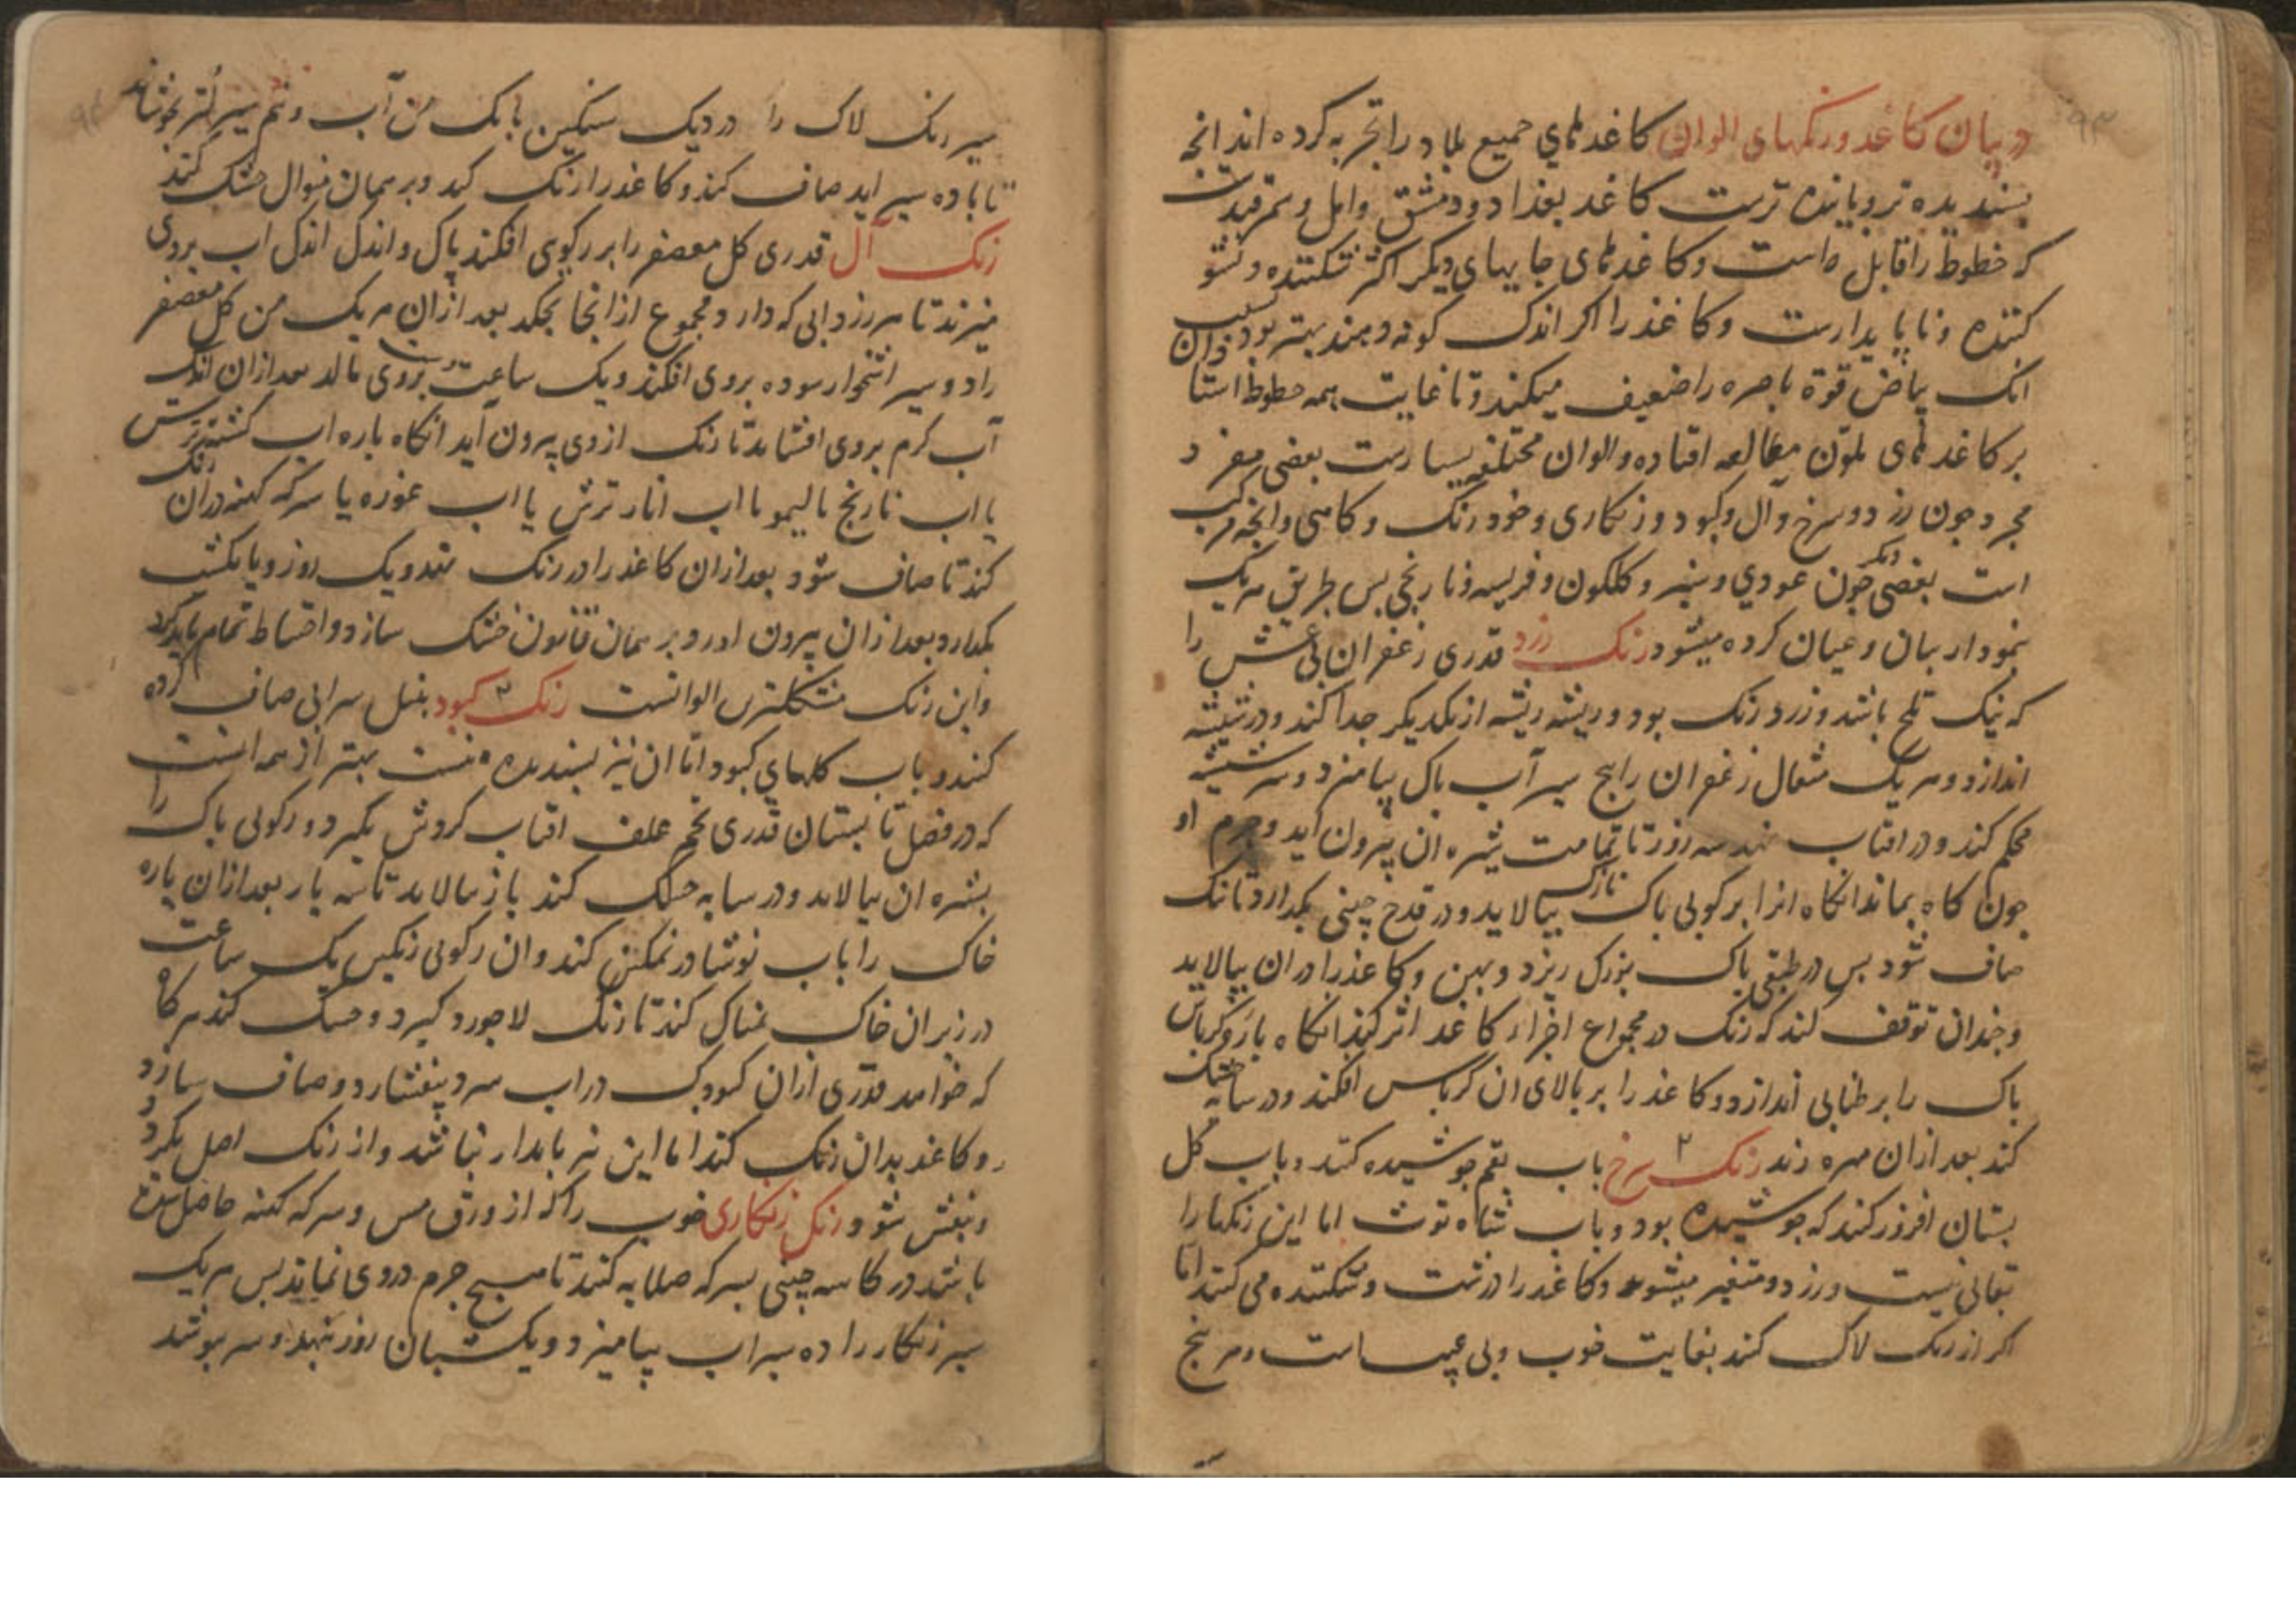 در بیان کاغد و رنکهای الوان کاغدهای جمیع بلاد را تجربه کرده اند انچه
بسندیده تر و باینده ترست کاغد بغداد و دمشق و امل و سمرقندست
که خطوط را قابل است و کاغدهای جاییهای دیکر اکثر شکننده و نشو
کننده و ناپایدارست و کاغذ را اکر اندک کونه دهند بهتر بود بسبب
انک بیاض قوة باصره را ضعیف میکند و تا غایت همه خطوط استادان
بر کاغدهای ملون مطالعه افتاده و الوان مختلفه بسیارست بعضی مفرد
مجرد جون زرد و سرخ و آل و کبود و زنکاری و خودرنک و کاهی و انجه مرکب
است بعضی دیکر جون عودی و سبز و کلکون و فریسه و نارنجی بس طریق هر یک
نمودار بیان و عیان کرده میشود رنک زرد قدری زعفران بی غش را
که نیک تلخ باشد و زرد رنک بود و ریشه ریشه از یکدیکر جدا کند و در شیشه
اندازد و هر یک مثقال زعفران را بنج سیر آب باک بیامیزد و سر شیشه
محکم کند و در افتاب نهد سه روز تا تمامت شیره ان بیرون آید و جرم او
جون کاه بماند انکاه انرا برکویی باک نازک ببالاید و در قدح چینی بکدارد تا نیک
صاف شود بس در طبقی باک بزرک ریزد و بهن و کاغذ را در ان ببالاید
و جندان توقف کند که رنک در مجموع اجزاء کاغد اثر کند انکاه باره کرباس
باک را بر طنابی اندازد و کاغذ را بر بالای ان کرباس افکند و در سایه خشک
کند بعد ازان مهره زند رنک سرخ ۲ باب بقم جوشیده کنند و باب کل
بستان افروز کنند که جوشیده بود و باب شاه توت اما این رنکها را
بقائی نیست و زرد و متغیر میشود و کاغد را درشت و شکننده می کند اما
اکر از رنک لاک کند بغایت خوب و بی عیب است و هر بنج
سیر رنک لاک را در دیک سنکین با یک من آب و نیم سیر لتر بجوشاند
تا با ده سیر اید صاف کند و کاغد را رنک کند و بر همان منوال خشک کند
رنک آل قدری کل معصفر را بر رکوی افکند باک و اندک اندک اب بروی
میزند تا هر زردابی که دارد مجموع از انجا بجکد بعد ازان هر یک من کل معصفر
را دو سیر اشخوار سوده بروی افکند و یک ساعت بدست بروی مالد بعد ازان اندک
آب کرم بروی افشاند تا رنک از وی بیرون آید انکاه باره اب کشته ترش
یا اب نارنج یا لیمو یا اب انار ترش یا اب غوره یا سرکه کهنه دران رنک
کند تا صاف شود بعد ازان کاغد را در رنک نهد و یک روز و یا یکشب
بکدارد بعد ازان بیرون اورد و بر همان قانون خشک سازد و احتیاط تمام باید کرد
و این رنک مشکلترین الوانست رنک کبود ۳ بنیل سرابی صاف کرده
کنند و باب کلهای کبود اما ان نیز بسندیده نیست بهتر از همه انست
که در فصل تابستان قدری تخم علف افتاب کردش بکیرد و رکویی باک را
بشیره ان بیالاید و در سایه خشک کند باز بیالاید تا سه بار بعد ازان باره
خاک را باب نوشادر نمکین کند و ان رکویی رنکین یک ساعت
در زیر ان خاک نمناک کند تا رنک لاجورد کیرد و خشک کند هر کاه
که خواهد قدری ازان کبودک در اب سرد بیفشارد و صاف سازد
و کاغد بدان رنک کند اما این نیز بایدار نباشد و از رنک اصل بکردد
و بنفش شود رنک زنکاری خوب را که از ورق مس و سرکه کهنه حاصل شده
باشد در کاسه چینی بسرکه صلایه کنند تا هیج جرم در وی نماند بس هر یک
سیر زنکار را ده سیر اب بیامیزد و یک شبان روز بنهد و سر بوشد